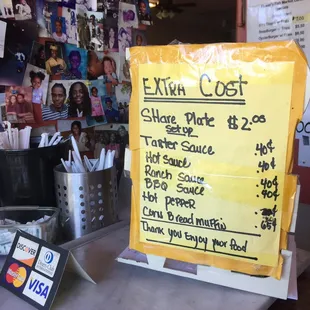 EXTRA COST
Share Plate $2.00
setup
Tarter Sauce 40¢
Hot Sauce .40¢
Ranch Sauce .40¢
BBQ Sauce .40¢
Hot PEPPER
Corn Bread muffin .65¢
Thank you Enjoy your food
DISCOVER
Diners Club
MasterCard
VISA